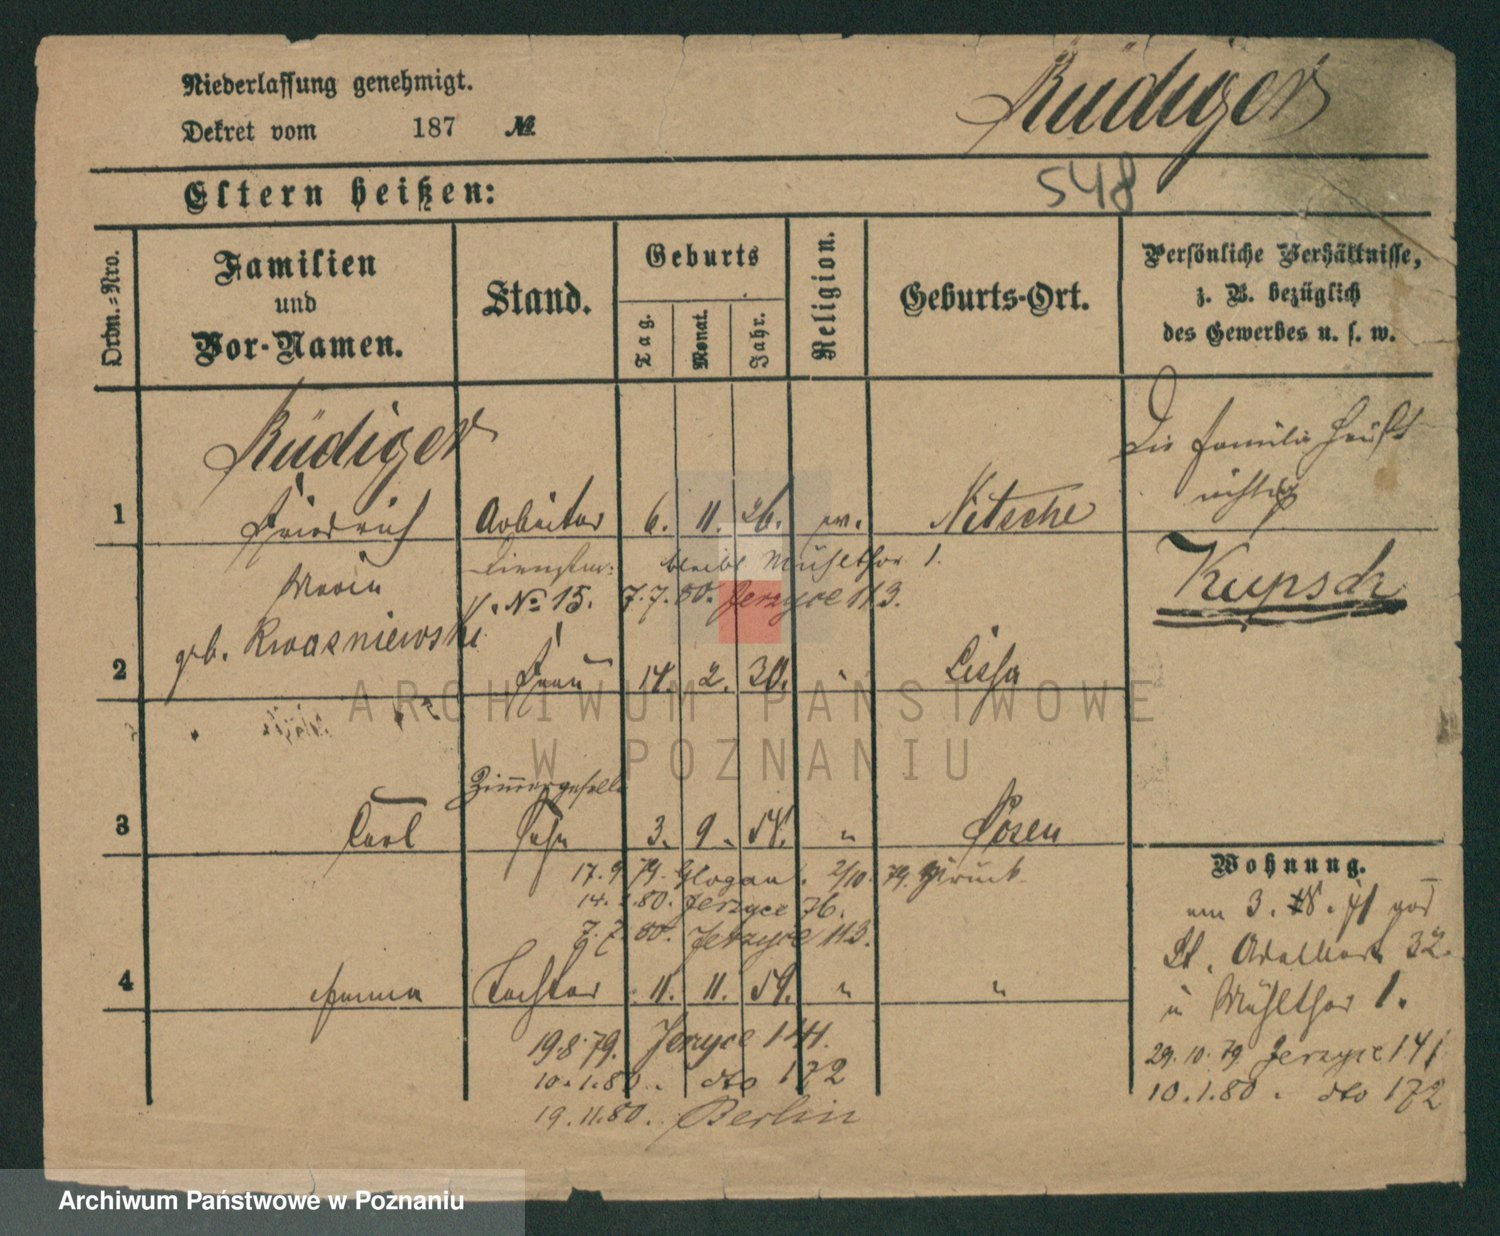 Niederlassung genehmigt.
Rüdiger
Dekret vom 187 №
548
Eltern heißen:
Ordn.-Nro.
Familien und Vor-Namen.
Stand.
Geburts
Tag.
Monat.
Jahr.
Religion.
Geburts-Ort.
Persönliche Verhältnisse,
z. B. bezüglich
des Gewerbes u. s. w.
Rüdiger
Die Familie heißt
richtig
Kupsch
1 Friedrich Arbeiter 6. 11. 26. ev. Nitsche
bleibt Mühlthor 1.
Maria № 15. 7.7.80. Jerzyce 113.
geb. Kwasniewski
2 Frau 14. 2. 30. " Lissa
ARCHIWUM PAŃSTWOWE
W POZNANIU
Zimmergeselle
3 Carl Sohn 3. 9. 54. " Posen
17.9.79. Glogau. 2/10. 79. zurück
14. .80. Jerzyce 76.
7.7.80. Jerzyce 113.
4 Emma Tochter 11. 11. 59. " "
19.8.79. Jerzyce 141.
10.1.80. dto 172
19.11.80. Berlin
Wohnung.
am 3. 78
St. Adalbert 32.
u Mühlthor 1.
29.10.79 Jerzyce 141
10.1.80. dto 172
Archiwum Państwowe w Poznaniu